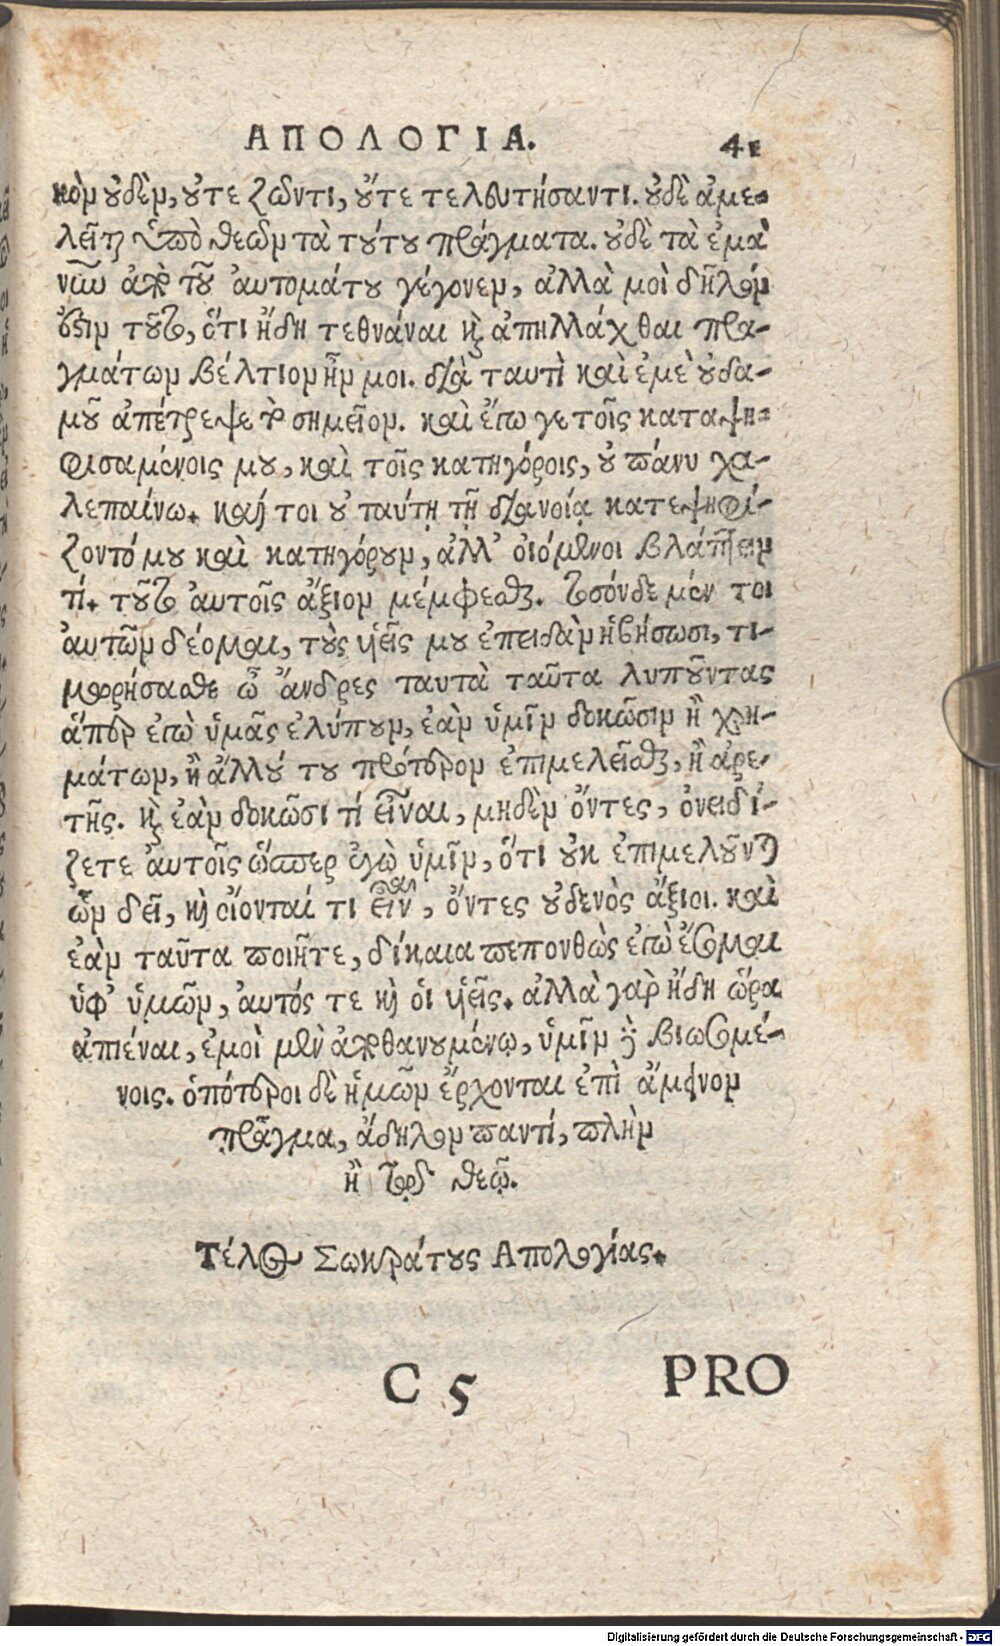 ΑΠΟΛΟΓΙΑ. 41
κὸν οὐδὲν, οὔτε ζῶντι, οὔτε τελευτήσαντι. οὐδὲ ἀμε-
λεῖται ὑπὸ θεῶν τὰ τούτου πράγματα. οὐδὲ τὰ ἐμὰ
νῦν ἀπὸ τοῦ αὐτομάτου γέγονεν, ἀλλὰ μοὶ δῆλόν
ἐστιν τοῦτο, ὅτι ἤδη τεθνάναι καὶ ἀπηλλάχθαι πρα-
γμάτων βέλτιον ἦν μοι. διὰ ταυτὶ καὶ ἐμὲ οὐδα-
μοῦ ἀπέτρεψε τὸ σημεῖον. καὶ ἔγωγε τοῖς καταψη-
φισαμένοις μου, καὶ τοῖς κατηγόροις, οὐ πάνυ χα-
λεπαίνω. καί τοι οὐ ταύτῃ τῇ διανοίᾳ κατεψηφί-
ζοντό μου καὶ κατηγόρουν, ἀλλ' οἰόμενοι βλάπτειν
τί. τοῦτο αὐτοῖς ἄξιον μέμφεσθαι. τοσόνδε μέν τοι
αὐτῶν δέομαι, τοὺς υἱεῖς μου ἐπειδὰν ἡβήσωσι, τι-
μωρήσασθε ὦ ἄνδρες ταυτὰ ταῦτα λυποῦντας
ἅπερ ἐγὼ ὑμᾶς ἐλύπουν, ἐὰν ὑμῖν δοκῶσιν ἢ χρη-
μάτων, ἢ ἄλλού του πρότερον ἐπιμελεῖσθαι, ἢ ἀρε-
τῆς. καὶ ἐὰν δοκῶσι τί εἶναι, μηδὲν ὄντες, ὀνειδί-
ζετε αὐτοῖς ὥσπερ ἐγὼ ὑμῖν, ὅτι οὐκ ἐπιμελοῦνται
ὧν δεῖ, καὶ οἴονταί τι εἶναι, ὄντες οὐδενὸς ἄξιοι. καὶ
ἐὰν ταῦτα ποιῆτε, δίκαια πεπονθὼς ἐγὼ ἔσομαι
ὑφ' ὑμῶν, αὐτός τε καὶ οἱ υἱεῖς. ἀλλὰ γὰρ ἤδη ὥρα
ἀπιέναι, ἐμοὶ μὲν ἀποθανουμένῳ, ὑμῖν δὲ βιωσομέ-
νοις. ὁπότεροι δὲ ἡμῶν ἔρχονται ἐπὶ ἄμεινον
πρᾶγμα, ἄδηλον παντί, πλὴν
ἢ τῷ θεῷ.
Τέλος Σωκράτους Απολογίας.
C 5 PRO
Digitalisierung gefördert durch die Deutsche Forschungsgemeinschaft - DFG